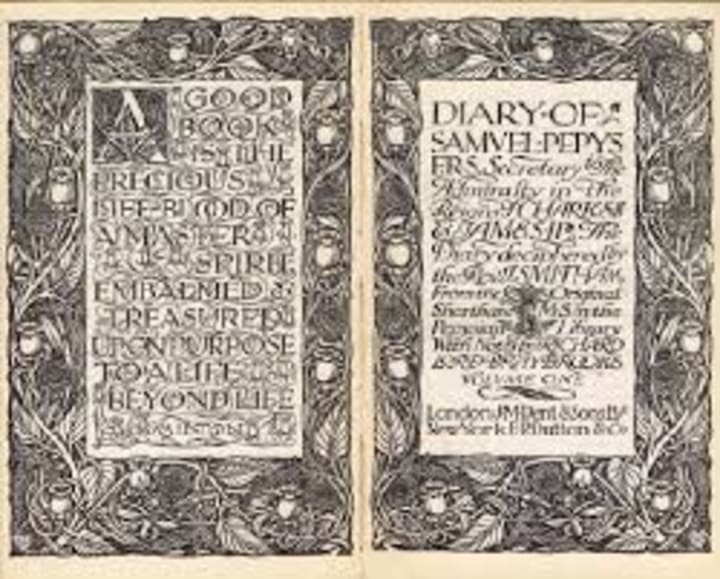 A GOOD
BOOK
IS THE
PRECIOUS
LIFE-BLOOD OF
A MASTER
SPIRIT
EMBALMED &
TREASURED
UPON PURPOSE
TO A LIFE
BEYOND LIFE
MILTON
DIARY·OF
SAMVEL·PEPYS
F.R.S. Secretary to the
Admiralty in the
Reign of CHARLES II
& JAMES II The
Diary deciphered by
the Rev J. SMITH
From the Original
Shorthand MS in the
Pepysian Library
With Notes by RICHARD
LORD BRAYBROOKE
VOLUME ONE
London J.M. Dent & Sons Ltd
New York E.P. Dutton & Co